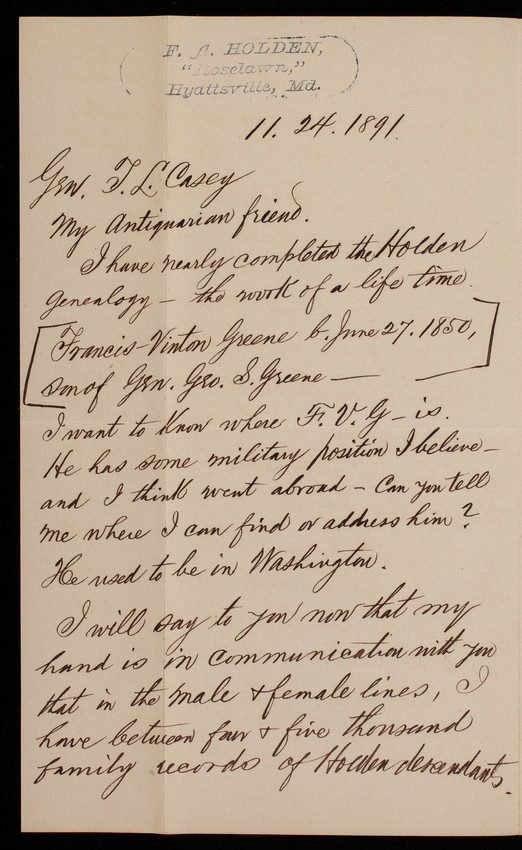 F. A. HOLDEN,
"Roselawn,"
Hyattsville, Md.
11. 24. 1891.
Gen. T. L. Casey
My Antiquarian friend.
I have nearly completed the Holden
genealogy – the work of a life time.
Francis Vinton Greene b. June 27. 1850,
son of Gen. Geo. S. Greene —
I want to know where F. V. G – is.
He has some military position I believe –
and I think went abroad – Can you tell
me where I can find or address him?
He used to be in Washington.
I will say to you now that my
hand is in communication with you
that in the male & female lines, I
have between four & five thousand
family records of Holden descendants.